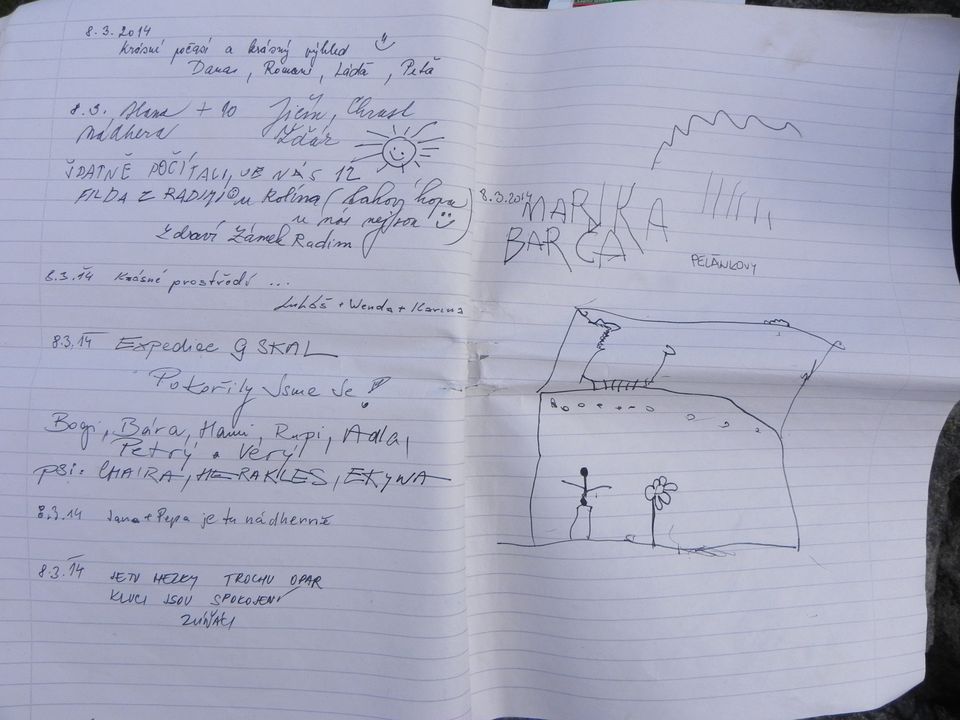 8.3.2014
krásní počasí a krásný výhled
Danas, Romans, Láďa, Peťa
8.3. Hana + 10 Jičín, Chrast
nádhera Žďár
ŽDATNĚ POČÍTALI, JE NÁS 12
FILDA Z RADIMI u Kolína (
u nás nejsou
Zdraví Zámek Radim
8.3.14 Krásné prostředí ...
Lukáš + Wenda + Karina
8.3.14 Expedice 9 SKAL
Pokořily jsme je!
Bogi, Bára, Hami, Rupi, Adla,
Petrý a Verý
psi: CHAIRA, HERAKLES, EKYWA
8.3.14 Jana + Pepa je tu nádherně
8.3.14 JETU HEZKY TROCHU OPAR
KLUCI JSOU SPOKOJENÍ
8.3.2014
MARIKA
BARČA
PELÁNKOVY